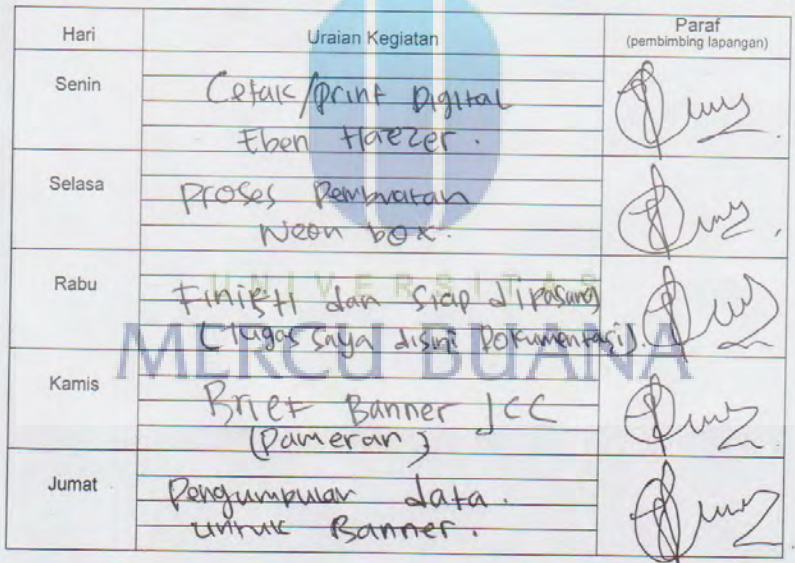 Hari Uraian Kegiatan Paraf
(pembimbing lapangan)
Senin Cetak/print Digital
Eben Haezer.
Selasa Proses Pembuatan
Neon box.
UNIVERSITAS
Rabu Finisti dan Siap dipasang
(Tugas saya disini Dokumentasi).
MERCU BUANA
Kamis Brief Banner JCC
(Pameran)
Jumat Pengumpulan data.
untuk Banner.